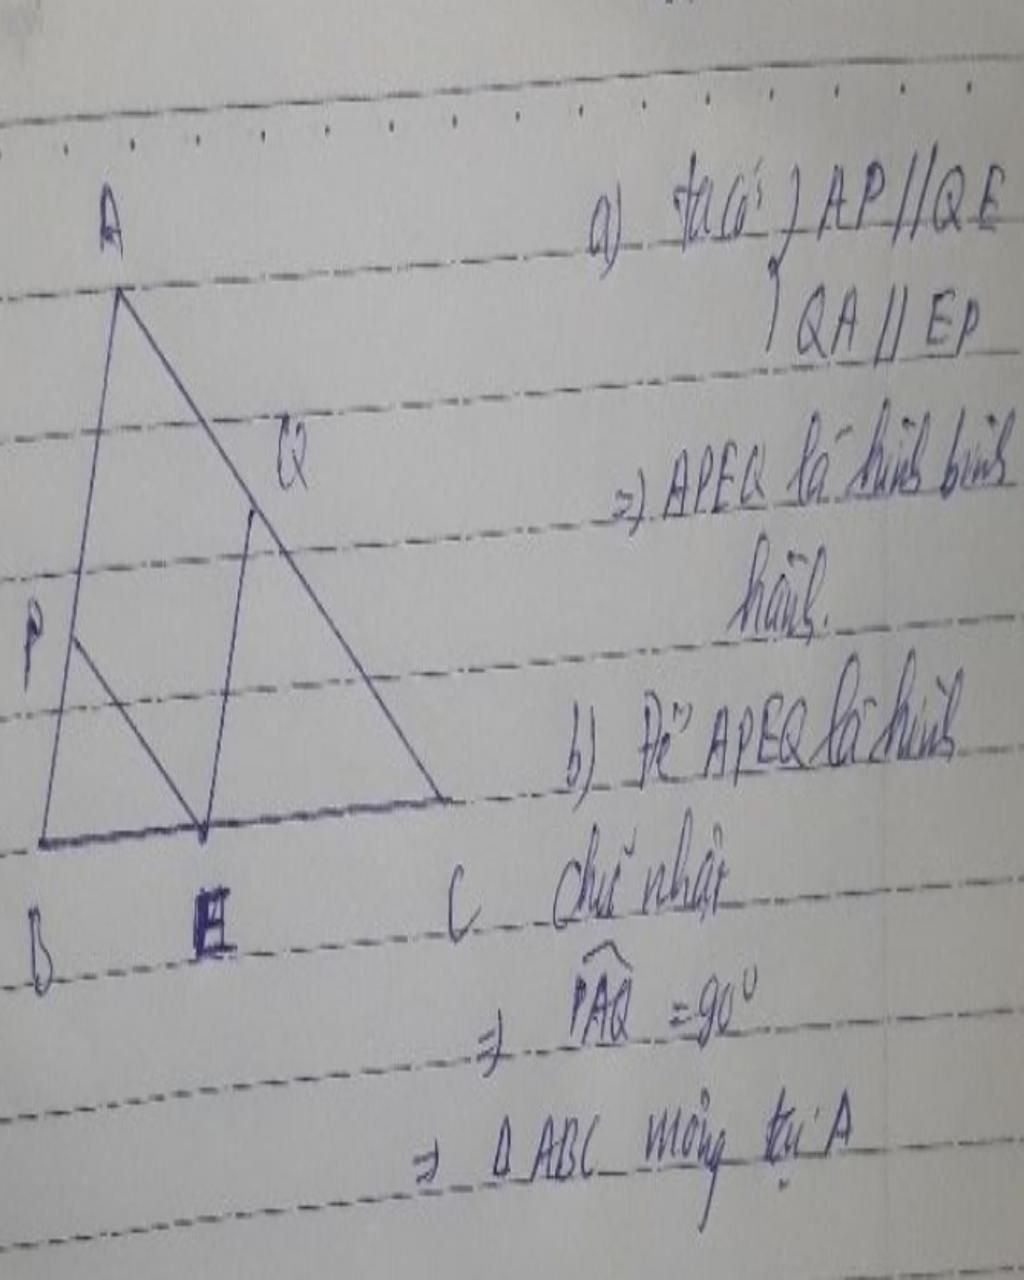 A
Q
P
B
E
C
a) ta có { AP // QE
{ QA // EP
=> APEQ là hình bình
hành.
b) Để APEQ là hình
chữ nhật
=> PAQ = 90°
=> Δ ABC vuông tại A